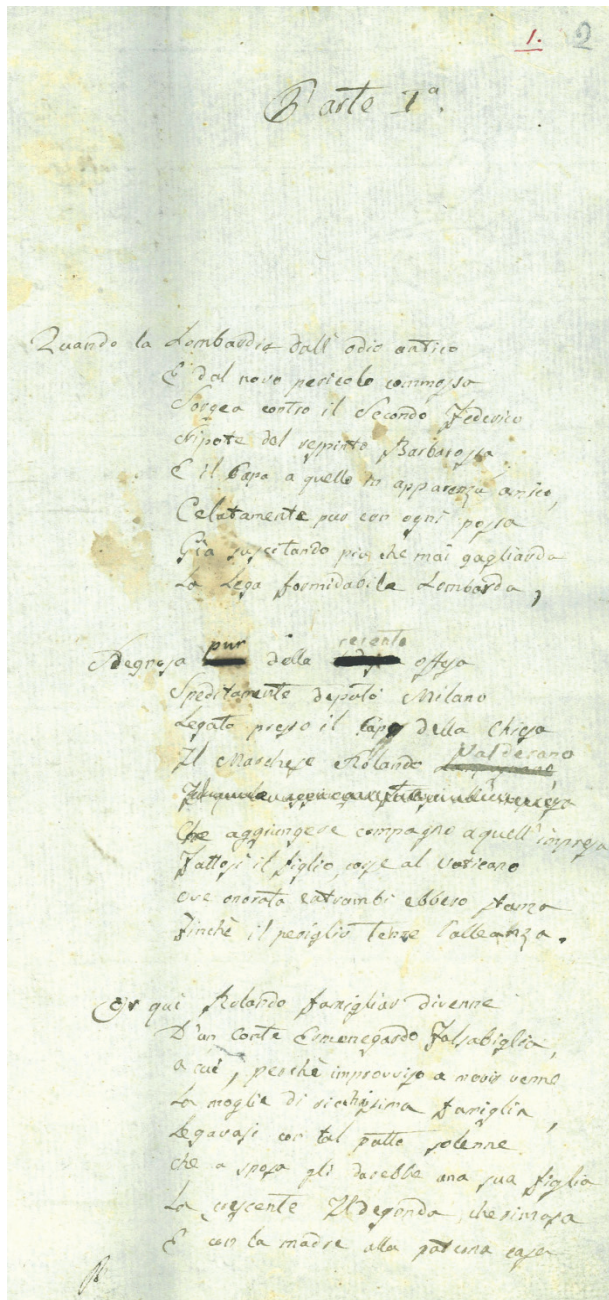 1. 2
Parte 1ª.
Quando la Lombardia dall' odio antico
E dal novo pericolo commossa
Sorgea contro il Secondo Federico
Nipote del respinto Barbarossa,
E il Papa a quello in apparenza amico,
Celatamente pur con ogni possa
Gía suscitando più che mai gagliarda
La Lega formidabile Lombarda,
pur recente
della offesa
Speditamente deputò Milano
Legato presso il Capo della Chiesa
Il Marchese Rolando Valderano
Che aggiungere compagno a quell' impresa
Fattosi il figlio, corse al Vaticano
ove onorata entrambi ebbero stanza
Finchè il periglio tenze l'alleanza.
Or qui Rolando famigliar divenne
D'un conte Ermenegardo Falsabiglia,
a cui, perchè improvviso a morir venne
La moglie di ricchissima famiglia,
Legavasi con tal patto solenne
che a sposa gli darebbe una sua figlia
La crescente Ildegonda, che rimasa
E con la madre alla paterna casa